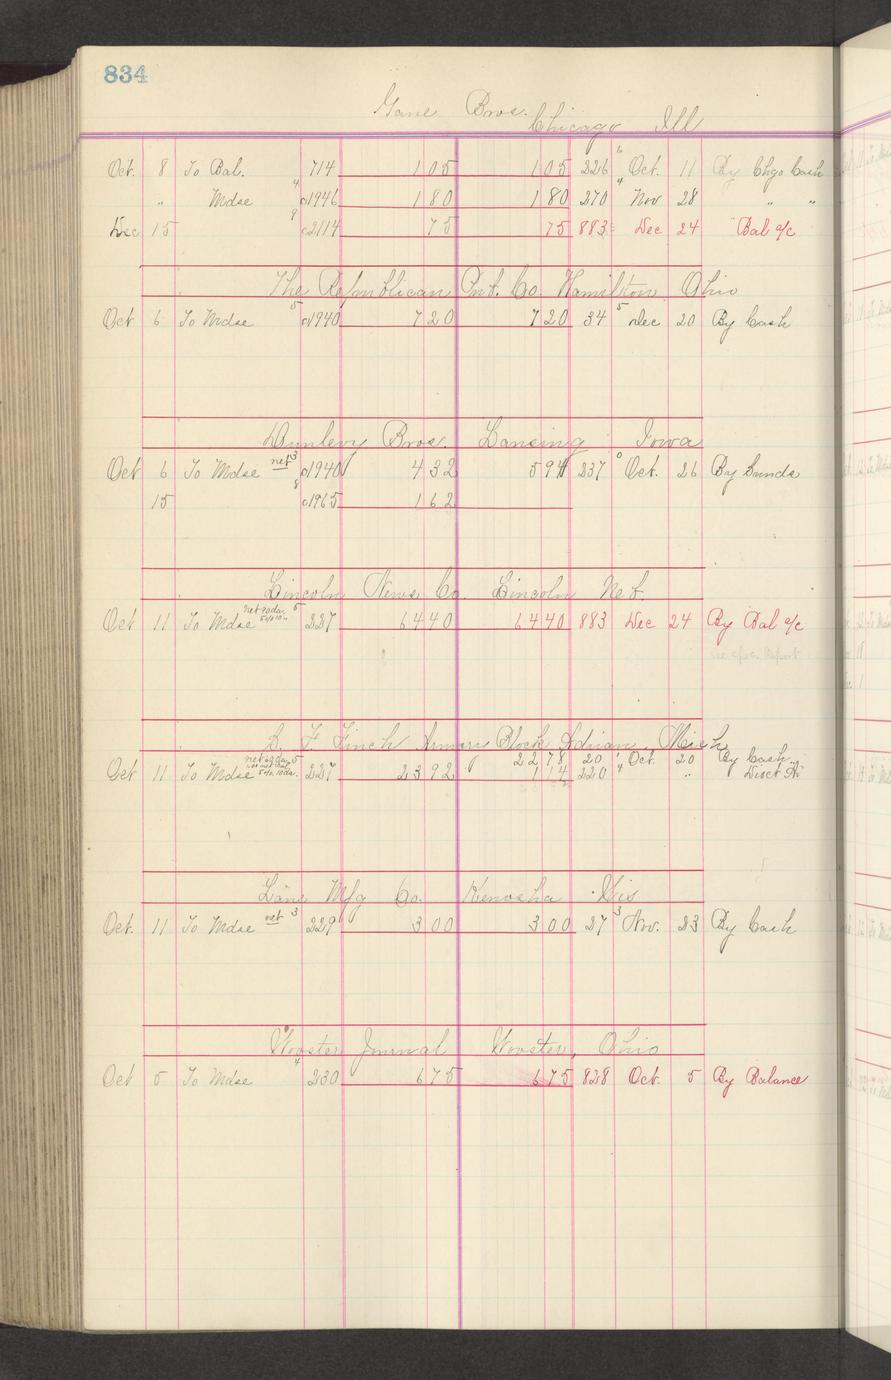 834
Gane Bros. Chicago Ill
Oct. 8 To Bal. 714 1 05 1 05 226 6 Oct. 11 By Chgo Cash
" Mdse 4 c1946 1 80 1 80 270 4 Nov 28 " "
Dec 15 8 c2114 75 75 883 Dec 24 " Bal a/c
The Republican Pub. Co. Hamilton Ohio
Oct 6 To Mdse 5 c1940 7 20 7 20 34 5 Dec 20 By Cash
Dunlevy Bros. Lansing Iowa
Oct 6 To Mdse net 3 c1940 4 32 5 94 237 0 Oct. 26 By Sunds
15 8 c1965 1 62
Lincoln News Co. Lincoln Neb.
Oct 11 To Mdse net 90 da. 5 227 64 40 64 40 883 Dec 24 By Bal a/c
Report
Finch Armory Block Adrian, Mich
22 78 20 1 Oct. 20 By Cash
Oct 11 To Mdse 5% 10 da. 5 227 23 92 1 14 220 4 " Disct
Lane Mfg Co. Kenosha Wis
Oct. 11 To Mdse net 3 229 3 00 3 00 27 3 Nov. 23 By Cash
Wooster Journal Wooster, Ohio
Oct 5 To Mdse 4 230 6 75 6 75 828 Oct. 5 By Balance